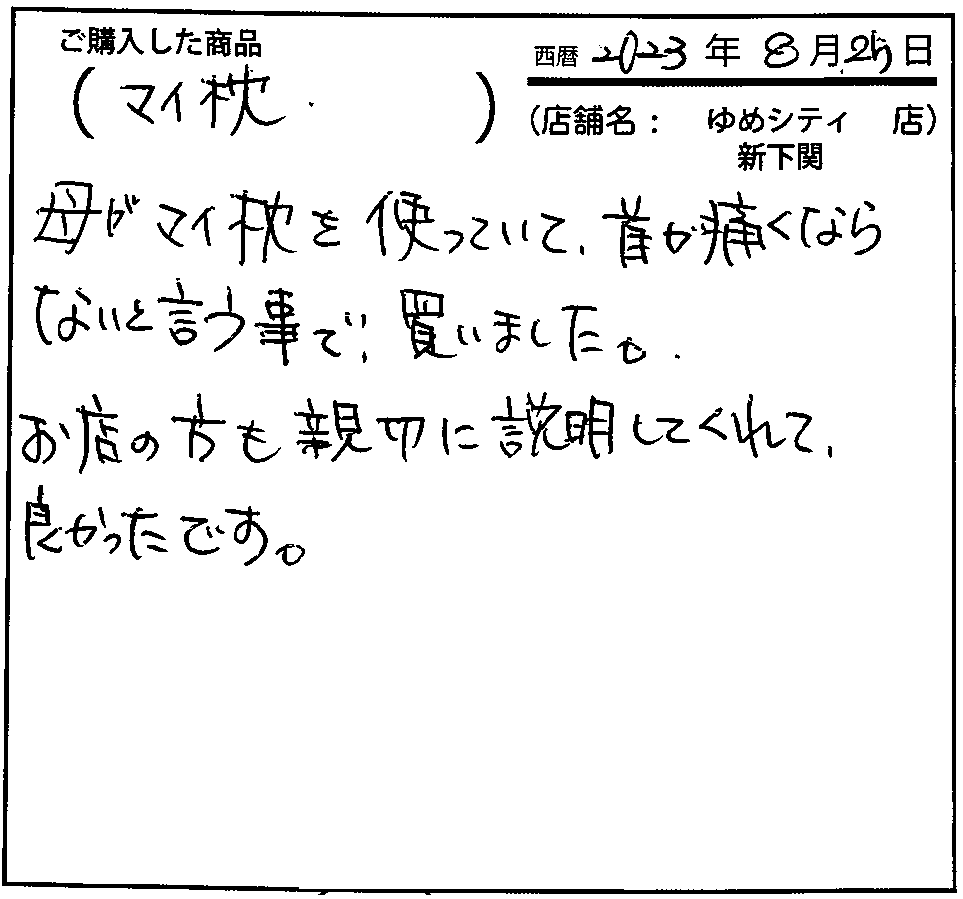 ご購入した商品
(マイ枕)
西暦 2023 年 8 月 25 日
(店舗名: ゆめシティ 店)
新下関
母がマイ枕を使っていて、首が痛くなら
ないと言う事で、買いました。
お店の方も親切に説明してくれて、
良かったです。